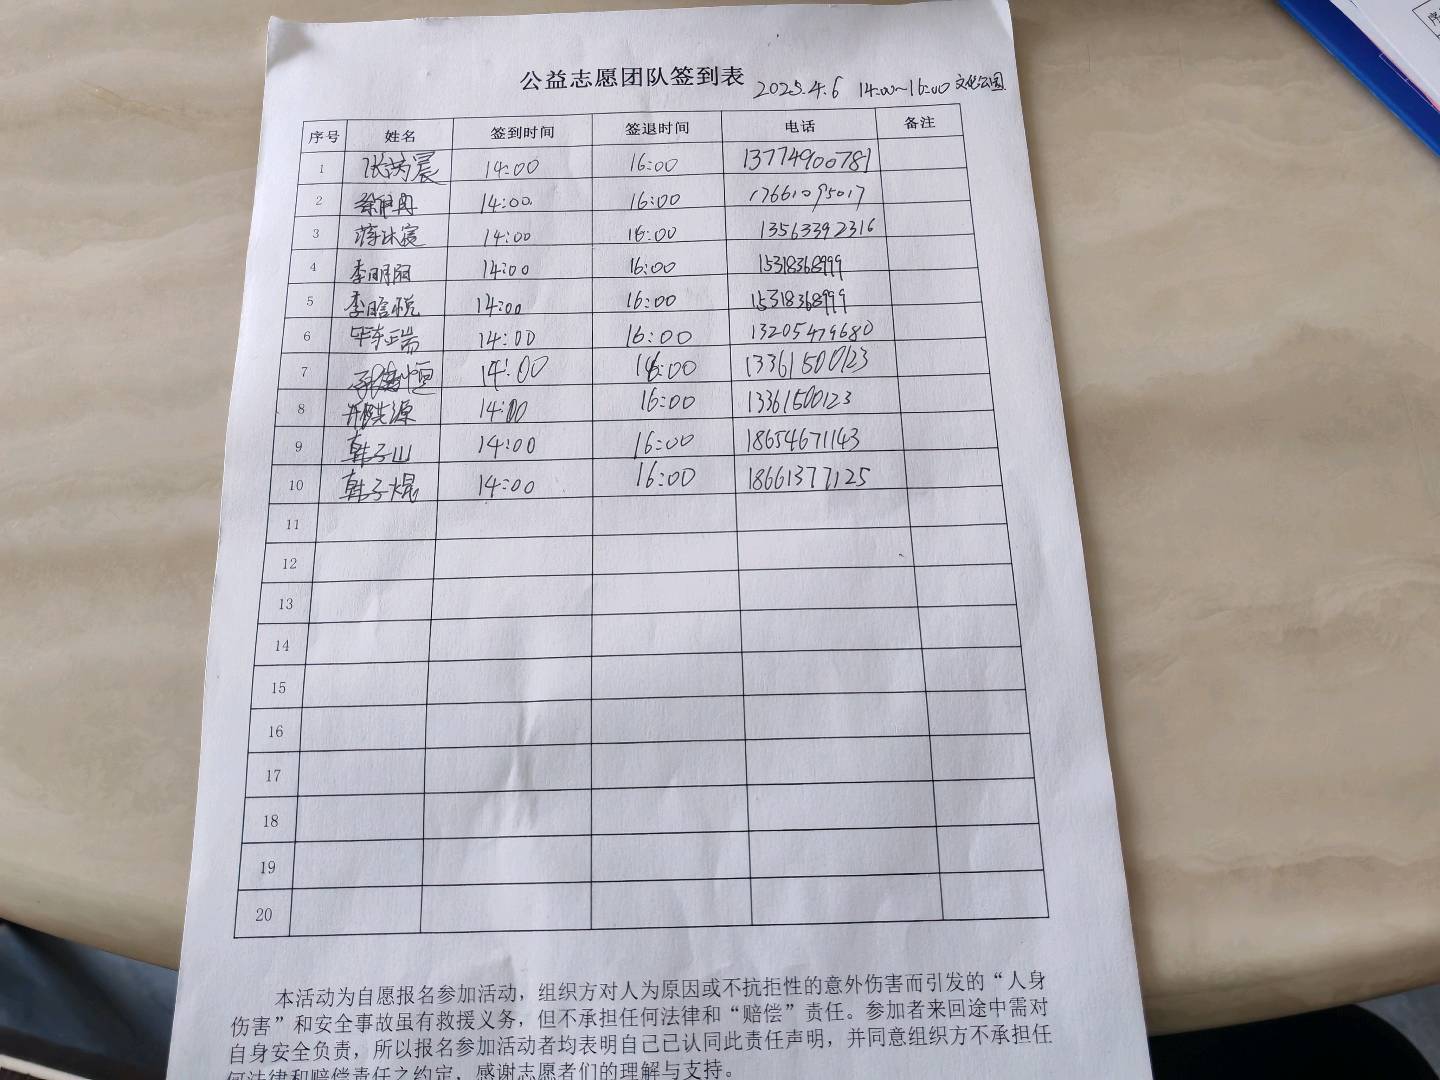 公益志愿团队签到表 2025.4.6 14:00~16:00 文化公园
序号 姓名 签到时间 签退时间 电话 备注
1 张 晨 14:00 16:00 13774900781
2 14:00 16:00 17661095017
3 蒋沐宸 14:00 16:00 13563392316
4 李明丽 14:00 16:00 15318368999
5 李晗悦 14:00 16:00 15318368999
6 14:00 16:00 13205479680
7 14:00 16:00 13361500123
8 邢洪源 14:00 16:00 13361500123
9 韩子山 14:00 16:00 18654671143
10 韩子焜 14:00 16:00 18661377125
11
12
13
14
15
16
17
18
19
20
本活动为自愿报名参加活动，组织方对人为原因或不抗拒性的意外伤害而引发的“人身
伤害”和安全事故虽有救援义务，但不承担任何法律和“赔偿”责任。参加者来回途中需对
自身安全负责，所以报名参加活动者均表明自己已认同此责任声明，并同意组织方不承担任
何法律和赔偿责任之约定，感谢志愿者们的理解与支持。
序